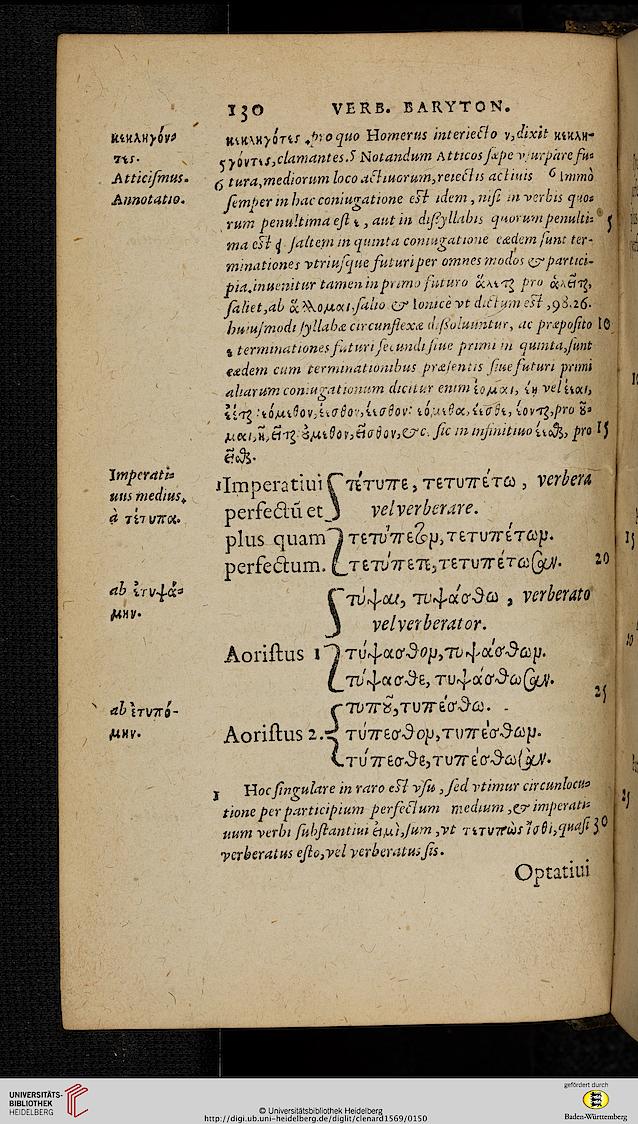 130 VERB. BARYTON.
κεκληγόν-
τες.
Atticismus.
Annotatio.
κεκληγότες, pro quo Homerus interiecto ν, dixit κεκλη-
5 γόντες, clamantes. 5 Notandum Atticos sæpe vsurpare fu-
6 tura, mediorum loco actiuorum, reiectis actiuis 6 Immò
semper in hac coniugatione est idem, nisi in verbis quo-
rum penultima est ε, aut in dissyllabis quorum penulti- 5
ma est
saltem in quinta coniugatione eædem sunt ter-
minationes vtriusque futuri per omnes modos & partici-
pia. inuenitur tamen in primo futuro ἅλεται pro ἁλεῖται,
saliet, ab ἅλλομαι, salio & Ionicè vt dictum est, 98.26.
huiusmodi syllabæ circunflexæ dissoluuntur, ac præposito 10
ε terminationes futuri secundi siue primi in quinta, sunt
eædem cum terminationibus præsentis siue futuri primi
aliarum coniugationum dicitur enim ἐομαι, ἐῃ vel ἐεαι,
ἐέται: εόμεθον, ἐεσθον, ἐεσθον: εόμεθα, ἐεσθε, ἐονται, pro οῦ-
μαι, ῇ, εῖται: ούμεθον, εῖσθον, &c. sic in infinitiuo ἐεσθαι, pro 15
εῖσθαι.
Imperati-
uus medius,
à τέτυπα.
1 Imperatiui perfectũ et plus quam perfectum.
τέτυπε, τετυπέτω, verbera
vel verberare.
τετύπετον, τετυπέτων.
τετύπετε, τετυπέτωσαν. 20
ab ἐτυψά-
μην.
Aoristus 1
τύψαι, τυψάσθω, verberato
vel verberator.
τύψασθον, τυψάσθων.
τύψασθε, τυψάσθωσαν.
25
ab ἐτυπό-
μην.
Aoristus 2.
τυποῦ, τυπέσθω.
τύπεσθον, τυπέσθων.
τύπεσθε, τυπέσθωσαν.
1 Hoc singulare in raro est vsu, sed vtimur circunlocu-
tione per participium perfectum medium, & imperati-
uum verbi substantiui εἰμὶ, sum, vt τετυπὼς ἴσθι, quasi 30
verberatus esto, vel verberatus sis.
Optatiui
UNIVERSITÄTS-
BIBLIOTHEK
HEIDELBERG
© Universitätsbibliothek Heidelberg
http://digi.ub.uni-heidelberg.de/diglit/clenard1569/0150
gefördert durch
Baden-Württemberg